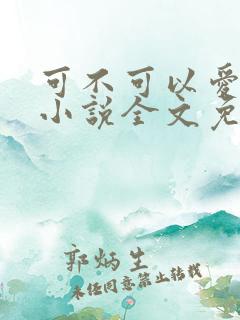 可不可以愛
小說全文免
郭炳生
未经同意禁止转载